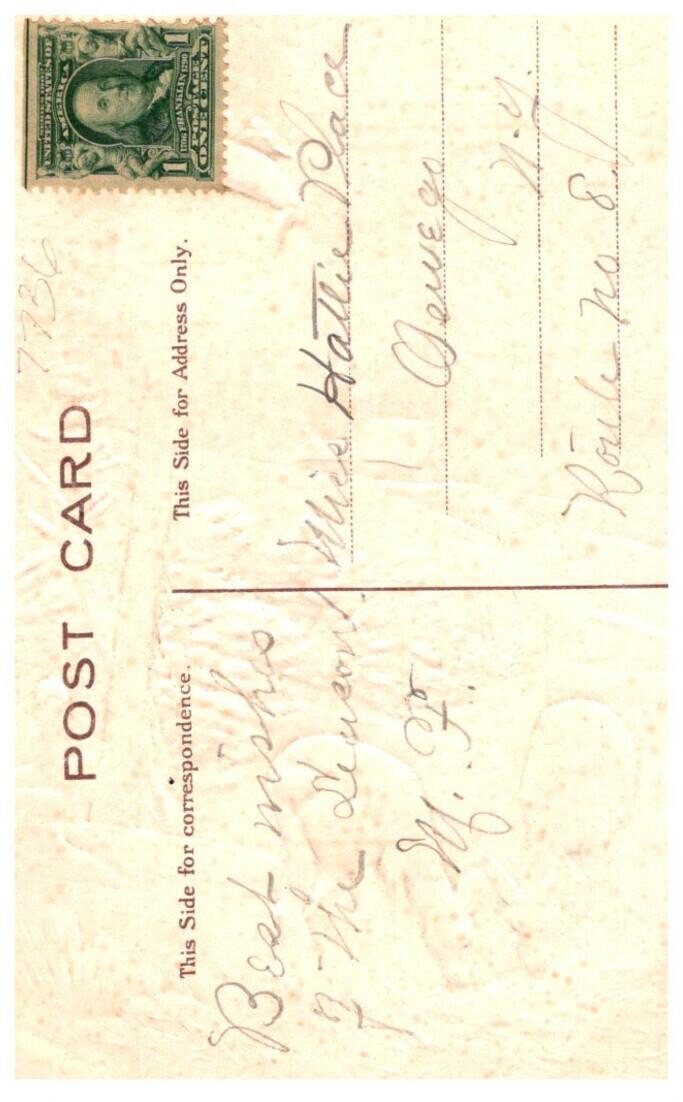 POST CARD
7736
SERIES 1902
UNITED STATES OF
AMERICA
1706 FRANKLIN 1790
POSTAGE
1 ONE CENT 1
This Side for correspondence.
This Side for Address Only.
Best wishes
of the Season
M. F.
Miss Hattie Place
Oswego
N.Y.
Route No 8.